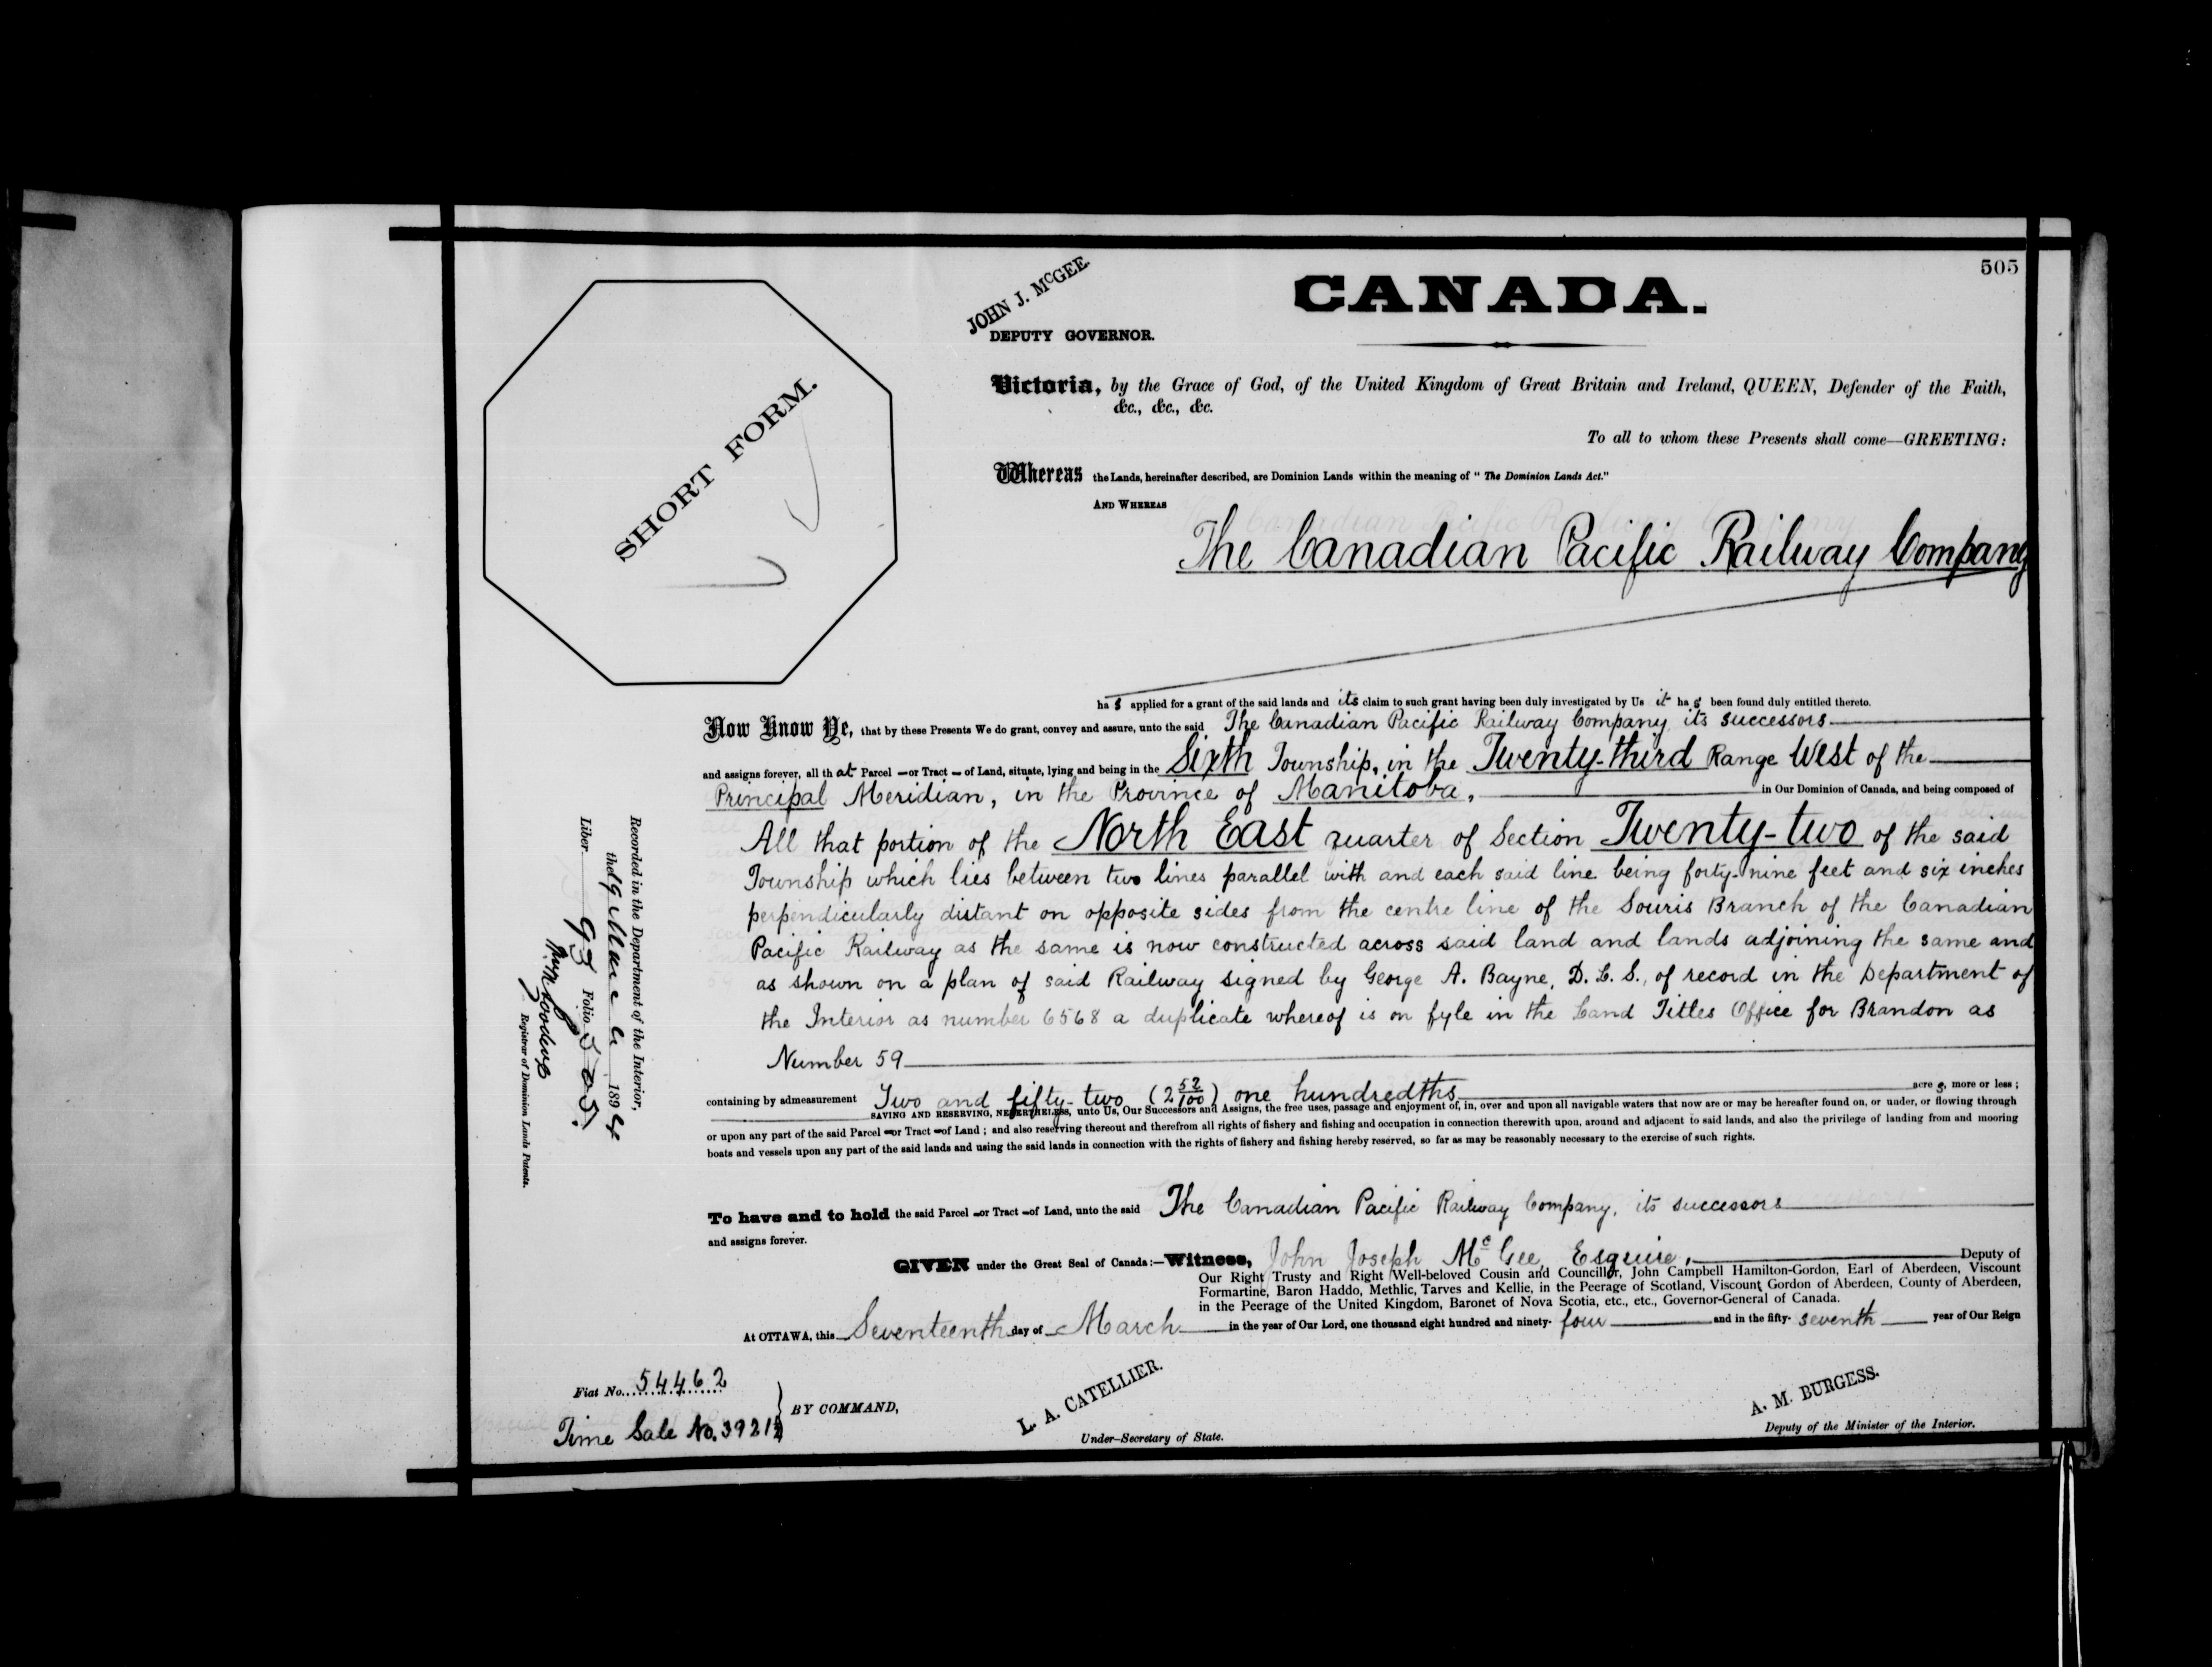 505
CANADA.
JOHN J. McGEE.
DEPUTY GOVERNOR.
SHORT FORM.
Victoria, by the Grace of God, of the United Kingdom of Great Britain and Ireland, QUEEN, Defender of the Faith,
&c., &c., &c.
To all to whom these Presents shall come—GREETING:
Whereas the Lands, hereinafter described, are Dominion Lands within the meaning of "The Dominion Lands Act."
AND WHEREAS
The Canadian Pacific Railway Company
has applied for a grant of the said lands and its claim to such grant having been duly investigated by Us it has been found duly entitled thereto.
Now Know Ye, that by these Presents We do grant, convey and assure, unto the said The Canadian Pacific Railway Company, its successors
and assigns forever, all that Parcel or Tract of Land, situate, lying and being in the Sixth Township, in the Twenty-third Range West of the
Principal Meridian, in the Province of Manitoba, in Our Dominion of Canada, and being composed of
All that portion of the North East quarter of Section Twenty-two of the said
Township which lies between two lines parallel with and each said line being forty-nine feet and six inches
perpendicularly distant on opposite sides from the centre line of the Souris Branch of the Canadian
Pacific Railway as the same is now constructed across said land and lands adjoining the same and
as shown on a plan of said Railway signed by George A. Bayne, D. L. S., of record in the Department of
the Interior as number 6568 a duplicate whereof is on fyle in the Land Titles Office for Brandon as
Number 59
containing by admeasurement Two and fifty-two (2 52/100) one hundredths acres, more or less;
SAVING AND RESERVING, NEVERTHELESS, unto Us, Our Successors and Assigns, the free uses, passage and enjoyment of, in, over and upon all navigable waters that now are or may be hereafter found on, or under, or flowing through
or upon any part of the said Parcel or Tract of Land; and also reserving thereout and therefrom all rights of fishery and fishing and occupation in connection therewith upon, around and adjacent to said lands, and also the privilege of landing from and mooring
boats and vessels upon any part of the said lands and using the said lands in connection with the rights of fishery and fishing hereby reserved, so far as may be reasonably necessary to the exercise of such rights.
To have and to hold the said Parcel or Tract of Land, unto the said The Canadian Pacific Railway Company, its successors
and assigns forever.
GIVEN under the Great Seal of Canada:—Witness, John Joseph McGee, Esquire, Deputy of
Our Right Trusty and Right Well-beloved Cousin and Councillor, John Campbell Hamilton-Gordon, Earl of Aberdeen, Viscount
Formartine, Baron Haddo, Methlic, Tarves and Kellie, in the Peerage of Scotland, Viscount Gordon of Aberdeen, County of Aberdeen,
in the Peerage of the United Kingdom, Baronet of Nova Scotia, etc., etc., Governor-General of Canada.
At OTTAWA, this Seventeenth day of March in the year of Our Lord, one thousand eight hundred and ninety-four and in the fifty-seventh year of Our Reign
Fiat No. 54462
Time Sale No. 39212
BY COMMAND,
L. A. CATELLIER.
Under-Secretary of State.
A. M. BURGESS.
Deputy of the Minister of the Interior.
Recorded in the Department of the Interior,
the 19 March 1894
Liber 93 Folio 505.
Registrar of Dominion Lands Patents.